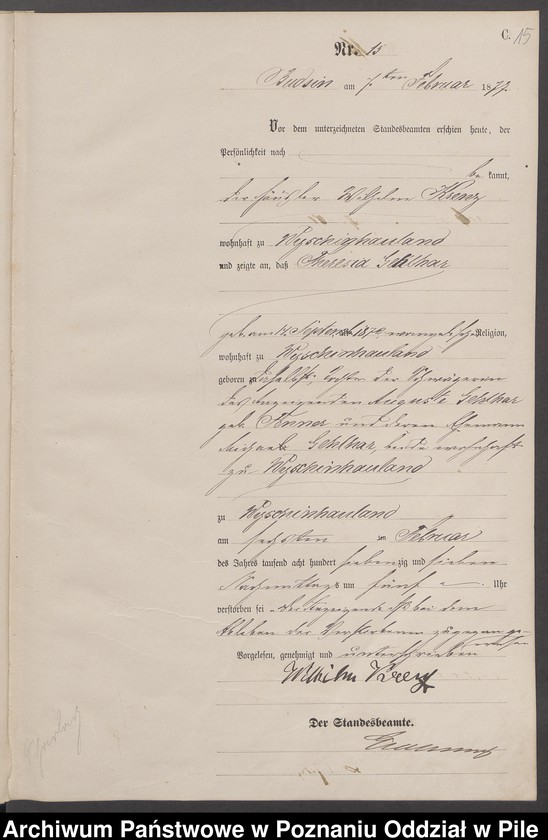 C. 15
Nr. 15
Budsin am 7ten Februar 1877.
Vor dem unterzeichneten Standesbeamten erschien heute, der
Persönlichkeit nach
be kannt,
der Häusler Wilhelm Krenz
wohnhaft zu Wyschinhauland
und zeigte an, daß Theresia Gehlhar
geb. am 14 September evangelischer Religion,
wohnhaft zu Wyschinhauland
geboren zu daselbst, Tochter der Schwägerin
des Anzeigenden Auguste Gehlhar
geb. und deren Ehemann
Michael Gehlhar, beide wohnhaft
zu Wyschinhauland
zu Wyschinhauland
am sechsten ten Februar
des Jahres tausend acht hundert siebenzig und sieben
Nachmittags um fünf Uhr
verstorben sei Der Anzeigende ist bei dem
Ableben der Verstorbenen zugegen ge-
wesen
Vorgelesen, genehmigt und unterschrieben
Wilhelm Krenz
Der Standesbeamte.
Archiwum Państwowe w Poznaniu Oddział w Pile